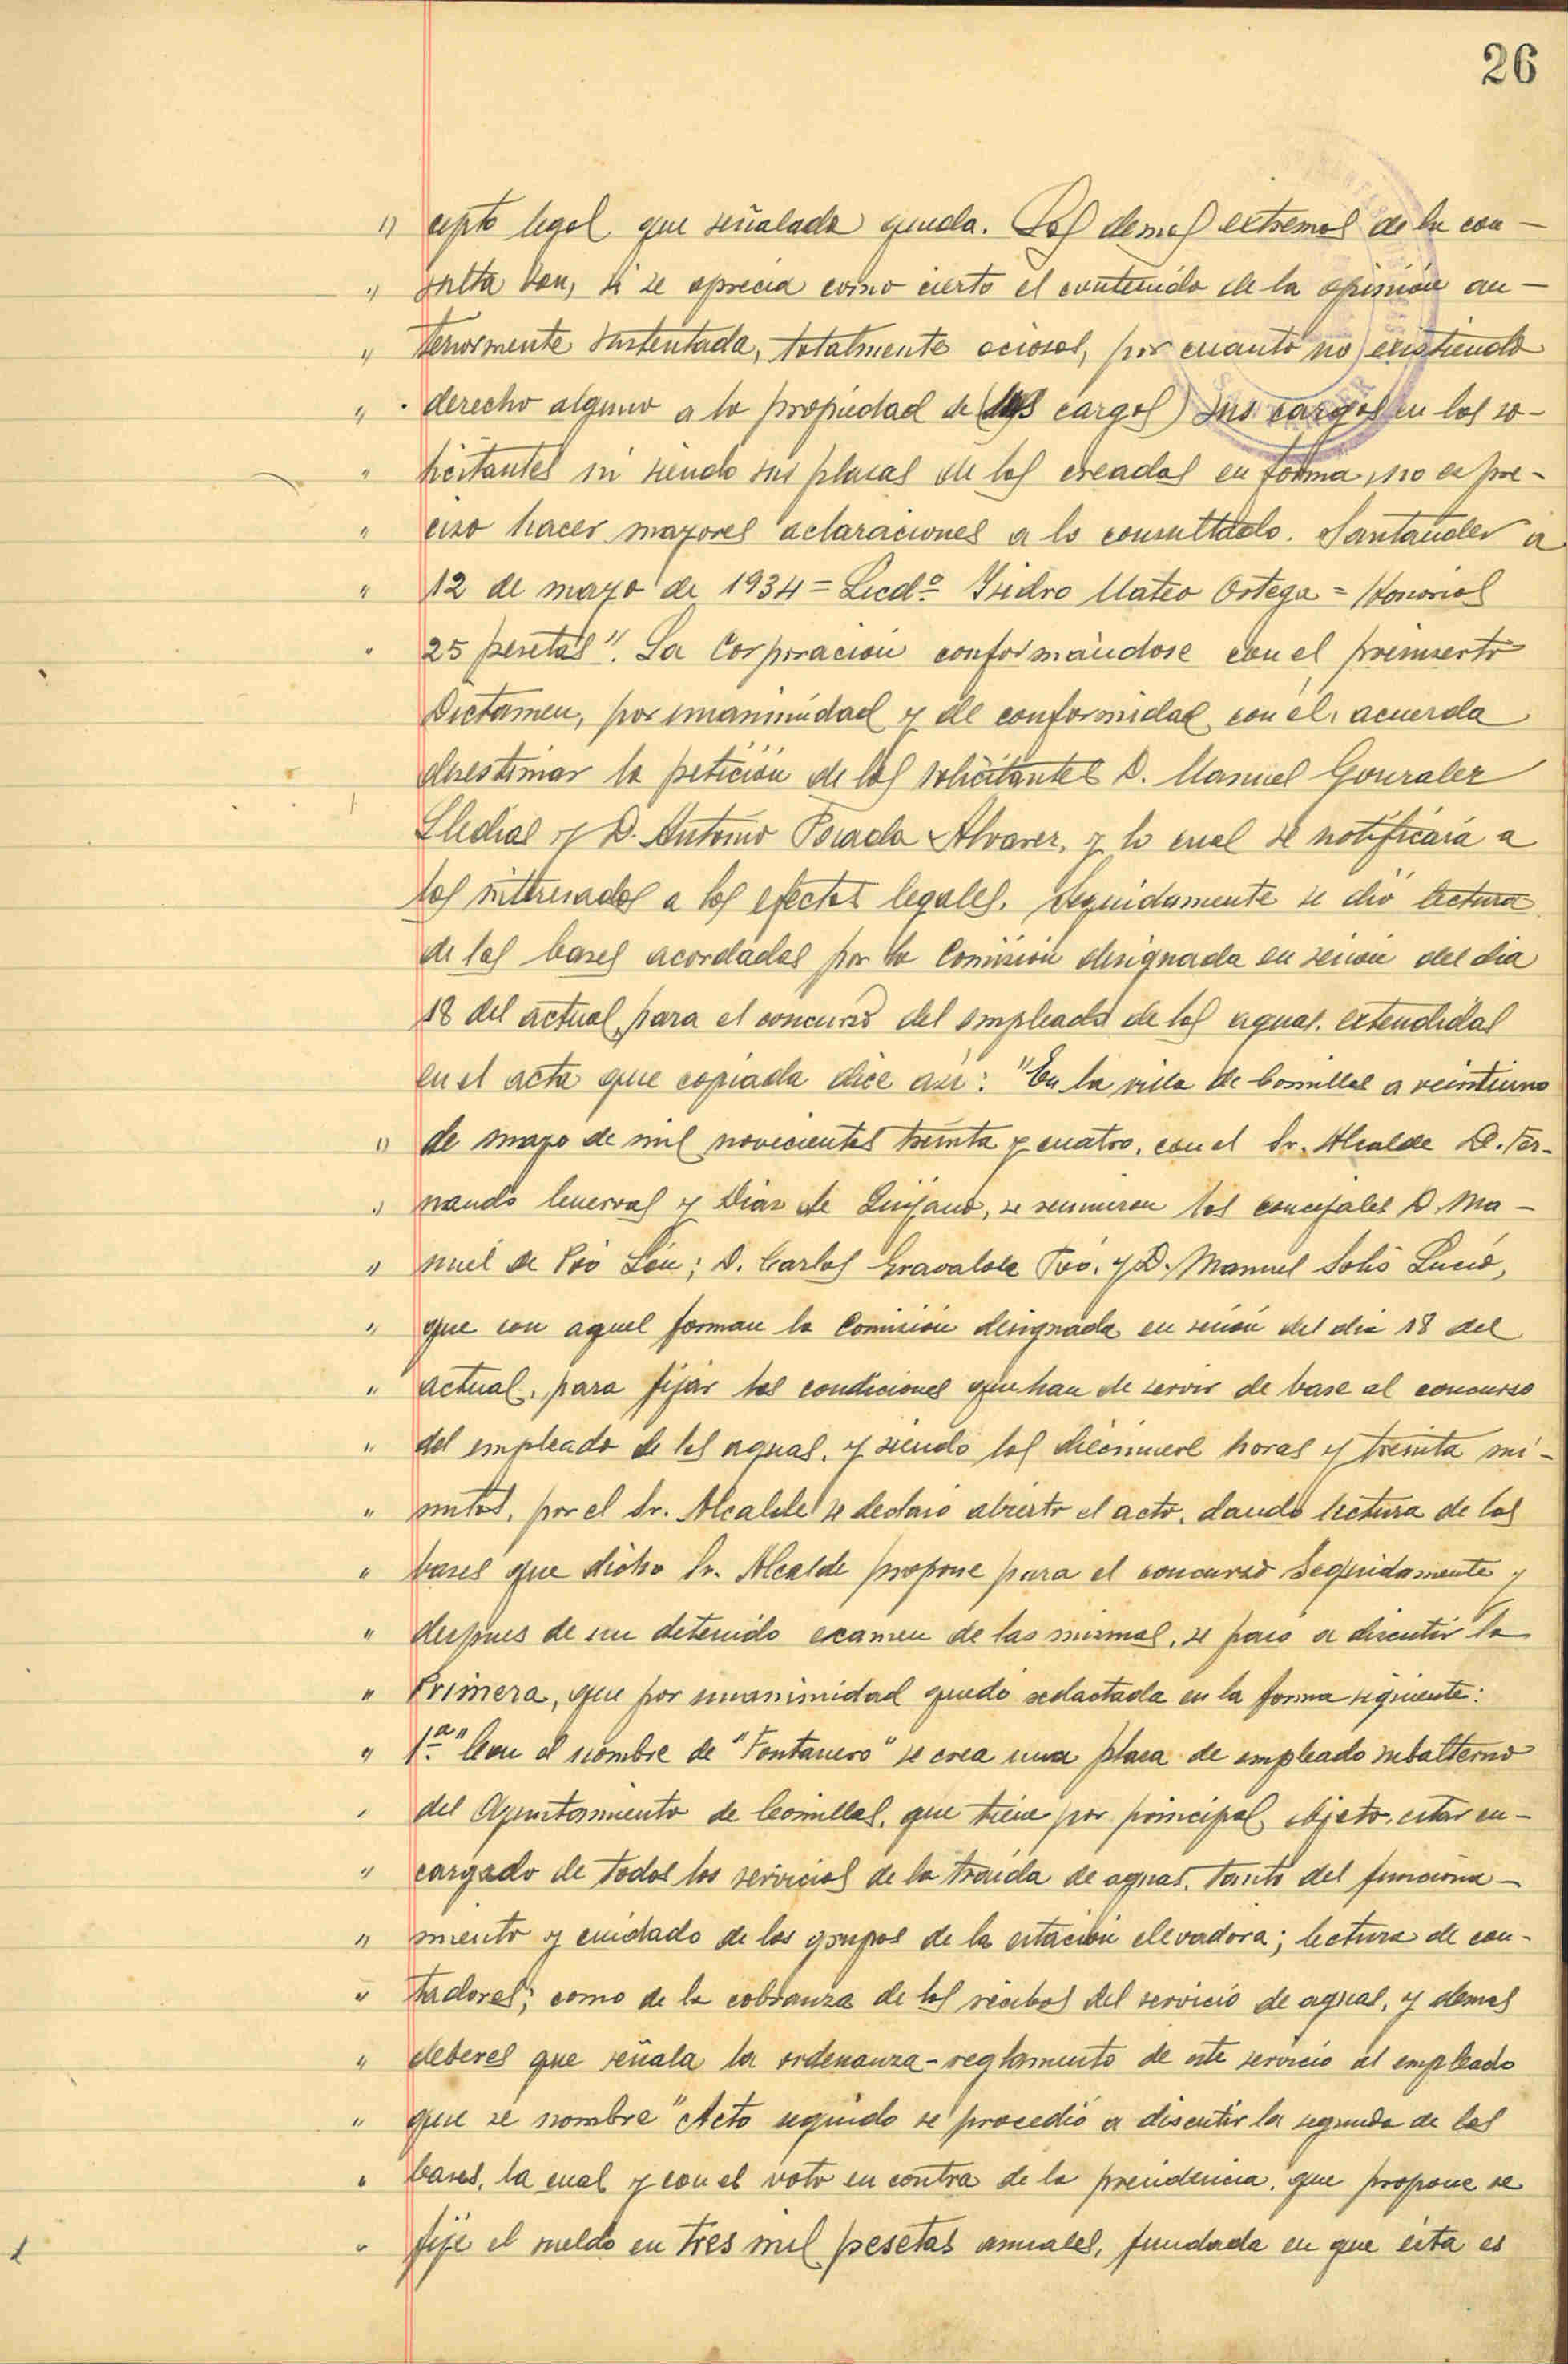 26
" cepto legal que señalado queda. Los demas extremos de la con-
" sulta son, si se aprecia como cierto el contenido de la opinión an-
" teriormente sustentada, totalmente ociosos, por cuanto no existiendo
" derecho alguno a la propiedad de (los cargos) sus cargos en los so-
" licitantes ni siendo sus plazas de las creadas en forma, no es pre-
" ciso hacer mayores aclaraciones a lo consultado. Santander a
" 12 de mayo de 1934 = Licdº Isidro Mateo Ortega = Honorios
" 25 pesetas". La Corporación conformándose con el preinserto
Dictamen, por unanimidad y de conformidad con él, acuerda
desestimar la petición de los solicitantes D. Manuel Gonzalez
Lledias y D. Antonio Posada Alvarez, y lo cual se notificará a
los interesados a los efectos legales. Seguidamente se dió lectura
de las bases acordadas por la Comisión designada en sesión del dia
18 del actual, para el concurso del empleado de las aguas, extendidas
en el acta que copiada dice así: "En la villa de Comillas a veintiuno
" de mayo de mil novecientos treinta y cuatro, con el Sr. Alcalde D. Fer-
" nando Cuerras y Diaz de Quijano, se reunieron los concejales D. Ma-
" nuel de Pró ; D. Carlos Gravalola y D. Manuel Solis Lucio,
" que con aquel forman la Comisión designada en sesión del dia 18 del
" actual, para fijar las condiciones que han de servir de base al concurso
" del empleado de las aguas, y siendo las diecinueve horas y treinta mi-
" nutos, por el Sr. Alcalde se declaró abierto el acto, dando lectura de las
" bases que dicho Sr. Alcalde propone para el concurso Seguidamente y
" despues de un detenido examen de las mismas, se pasó a discutir la
" Primera, que por unanimidad quedó redactada en la forma siguiente:
" 1.ª "Con el nombre de "Fontanero" se crea una plaza de empleado subalterno
" del Ayuntamiento de Comillas, que tiene por principal objeto, estar en-
" cargado de todos los servicios de la traida de aguas, tanto del funciona-
" miento y cuidado de los grupos de la estación elevadora; lectura de con-
" tadores; como de la cobranza de los recibos del servicio de aguas, y demas
" deberes que señala la ordenanza-reglamento de este servicio al empleado
" que se nombre" Acto seguido se procedió a discutir la segunda de las
" bases, la cual y con el voto en contra de la presidencia, que propone se
" fije el sueldo en tres mil pesetas anuales, fundada en que ésta es